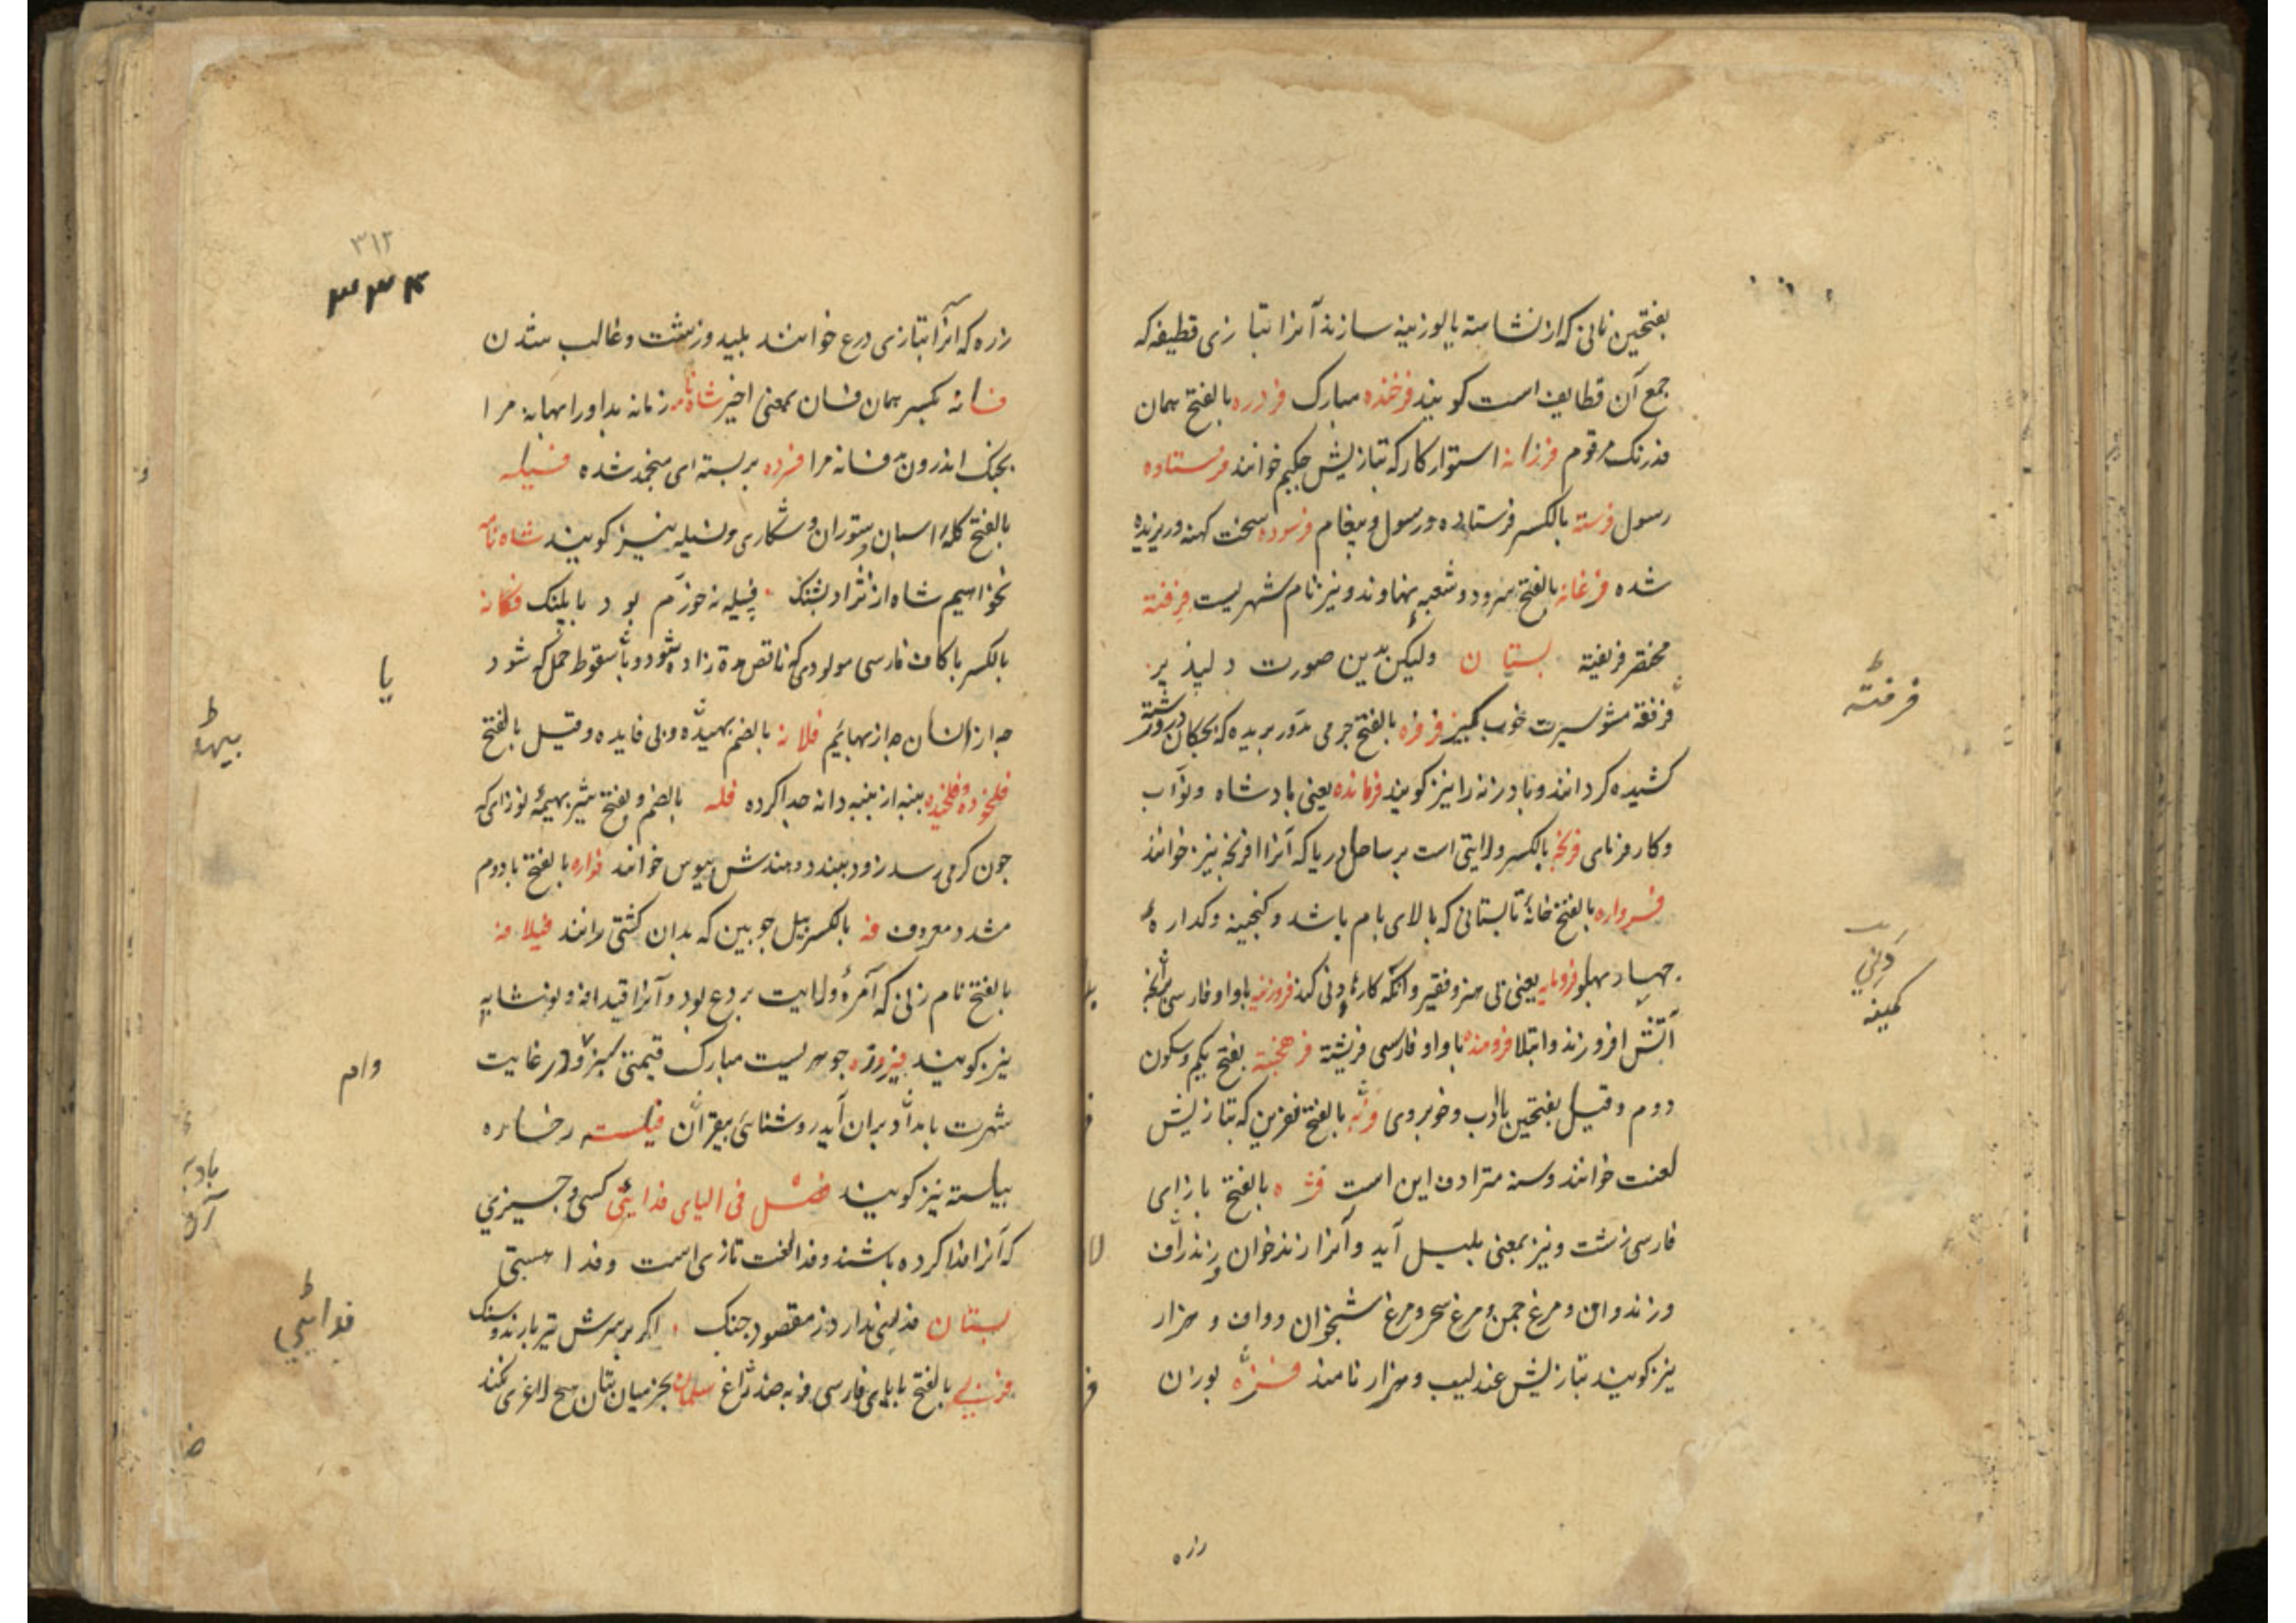 بفتحین نانی که از نشاسته یا لوزینه سازند آنرا بتازی قطیفه که
جمع آن قطایف است کویند فرخنده مبارک فردره بالفتح همان
فدرنک مرقوم فرزانه استوار کار که بتازیش حکیم خوانند فرستاده
رسول فرسته بالکسر فرستاده و رسول و پیغام فرسوده سخت کهنه و ریزیده
شده فرغانه بالفتح سرود و شعبه نهاوند و نیز نام شهریست فرفته
مختصر فریفته بستان ولیکن بدین صورت دلپذیر
فرفته مشو سیرت خوب کیر فرفره بالفتح چرمی مدور بریده که بچکان در و رشته
کشیده کردانند و بادزنه را نیز کویند فرمانده یعنی بادشاه و نواب
و کارفرمای فرنجه بالکسر ولایتی است بر ساحل دریا که آنرا افرنجه نیز خوانند
فرواره بالفتح خانهٔ تابستانی که بالای بام باشد و کنجینه و کداره
چهار پهلو فرومایه یعنی بی هنر و فقیر و آنکه کارهٔ دنی کند فروزینه باواو فارسی آنچه
آتش افروزند وابتلا فرومنده باواو فارسی فریشته فرهخته بفتح یکم و سکون
دوم وقیل بفتحین باادب و خوبروی فریه بالفتح نفرین که بتازیش
لعنت خوانند وسنه مترادف این است فژه بالفتح بازای
فارسی زشت و نیز بمعنی بلبل آید و آنرا زندخوان و زندواف
و زندوان و مرغ چمن و مرغ سحر و مرغ شبخوان و واف و هزار
نیز کویند بتازیش عندلیب و هزار نامند بوزن
زره
فرفته
کمینه
۳۱۲
۳۳۴
زره که آنرا بتازی درع خوانند پلید و زشت و غالب شدن
فسانه بکسر همان فسان بمعنی اخیر شاه نامه زمانه بداورا بهانه مرا
بجنک اندرون بد فسانه مرا فسرده بربسته ای منجمد شده فسیله
بالفتح کلهٔ اسبان و ستوران و شکاری و نسیله نیز کویند شاه نامه
نخواهیم شاه از نژاد پشنک فسیله نه خوزم بود با پلنک فکانه
بالکسر با کاف فارسی مولودی که ناقص مدة زاده شود و یا سقوط حمل که شود
چه از انسان چه از بهایم فلانه بالضم بیهده و بی فایده وقیل بالفتح
فلخوده و فلخیده پنبه از پنبه دانه جدا کرده فله بالضم و بفتح شیر بهیمهٔ نوزای که
چون کرمی رسد زود ببندد و هندش پیوس خوانند فواره بالفتح با دوم
مشدد معروف فه بالکسر بیل چوبین که بدان کشتی رانند فیلافه
بالفتح نام زنی که آمرهٔ ولایت بردع بود و آنرا قیدافه و نوشابه
نیز کویند فیروزه جوهریست مبارک قیمتی سبز و در غایت
شهرت بامداد بران آید روشنائی بیفزاید فیلسته رخساره
بیلسته نیز کویند فصل فی الیای فدائی کسی و چیزی
که آنرا فدا کرده باشند و فدا لغت تازی است و فدا نسبتی
بستان فدائی ندارد ز مقصود چنک اکر بر سرش تیر بارند و سنک
فربی بالفتح بابای فارسی فربه ضد لاغ سلمان بجز میان بتان هیچ لاغری نکند
یا
بیهده
وام
فدائی